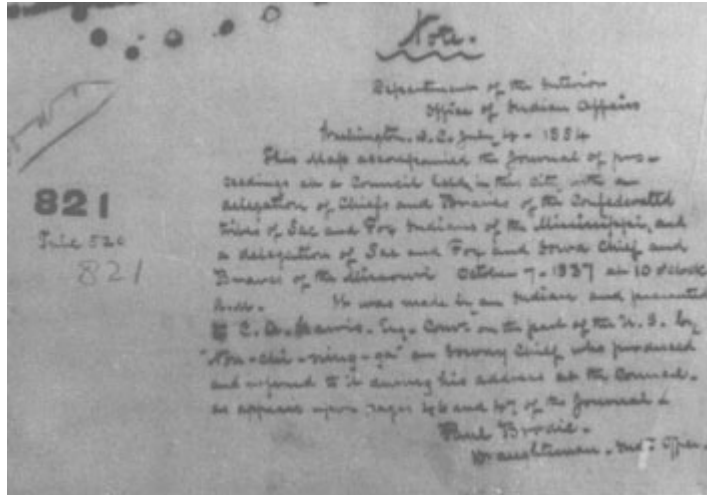 Note.
Department of the Interior
Office of Indian Affairs
Washington, D.C. July 4 - 1884
This Map accompanied the Journal of pro-
ceedings at a Council held in this city, with a
delegation of Chiefs and Braves of the Confederated
tribes of Sac and Fox Indians of the Mississippi, and
a delegation of Sac and Fox and Iowa Chief and
Braves of the Missouri October 7 - 1837 at 10 o'clock
A.M. It was made by an Indian and presented
C. A. Harris - Esq - Com'r on the part of the U. S. by
"Non-chi-ning-ga" an Ioway Chief, who produced
and referred to it during his address at the Council -
as appears upon pages 46 and 47 of the Journal -
Paul Brodie -
Draughtsman - Ind. Office -
821
Tube 520
821